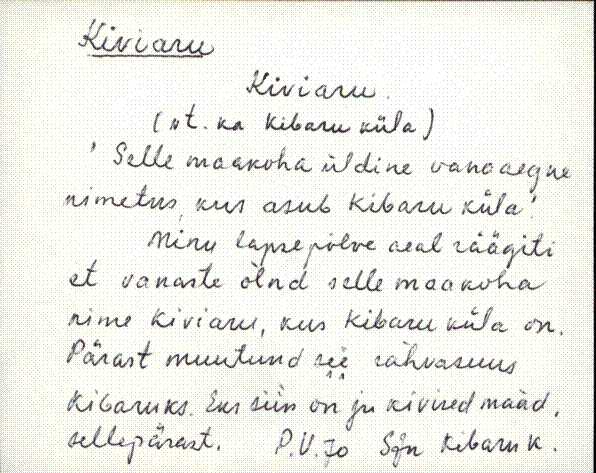 Kiviaru
Kiviaru.
(vt. ka Kibaru küla)
'Selle maakoha üldine vanaaegne
nimetus, kus asub Kibaru küla'.
Minu lapsepõlve aeal räägiti
et vanaste õlnd selle maakoha
nime Kiviaru, kus Kibaru küla on.
Pärast muutund see rahvasuus
Kibaruks. Eks siin on ju kivised määd,
sellepärast. P.V. Jõ Kibaru k.